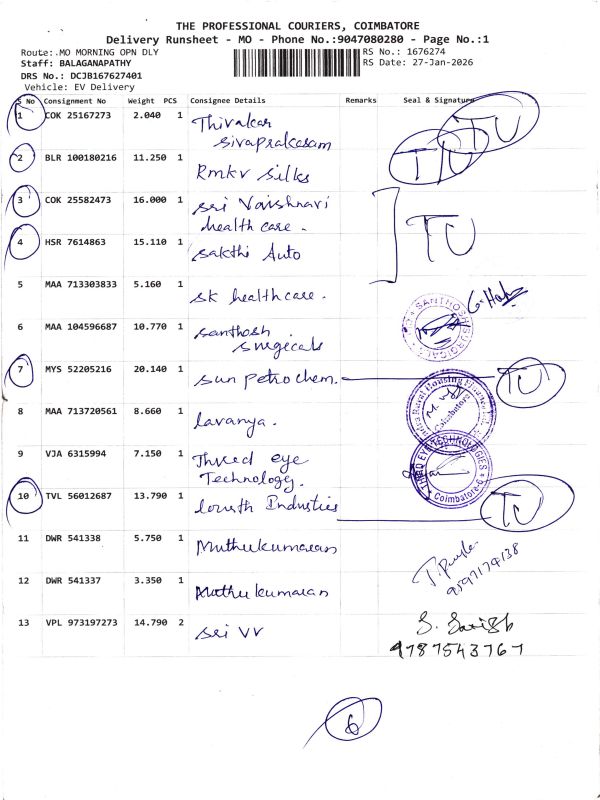 THE PROFESSIONAL COURIERS, COIMBATORE
Delivery Runsheet - MO - Phone No.:9047080280 - Page No.:1
Route:.MO MORNING OPN DLY
RS No.: 1676274
Staff: BALAGANAPATHY
RS Date: 27-Jan-2026
DRS No.: DCJB167627401
Vehicle: EV Delivery
S No Consignment No Weight PCS Consignee Details Remarks Seal & Signature
1 COK 25167273 2.040 1 Thivakar
Sivaprakasam
TU
2 BLR 100180216 11.250 1 Rmkv Silks
TU
3 COK 25582473 16.000 1 Sri Vaishnavi
health care.
TU
4 HSR 7614863 15.110 1 Sakthi Auto
5 MAA 713303833 5.160 1 SK healthcare.
6 MAA 104596687 10.770 1 Santhosh
Surgecals
SANTHOSH SURGICALS
7 MYS 52205216 20.140 1 Sun petrochem.
TU
8 MAA 713720561 8.660 1 lavanya.
Coimbatore
9 VJA 6315994 7.150 1 Threed eye
Technology.
EYE TECHNOLOGIES
Coimbatore-6
10 TVL 56012687 13.790 1 Industries
TU
11 DWR 541338 5.750 1 Muthukumaran
9597179138
12 DWR 541337 3.350 1 Muthukumaran
13 VPL 973197273 14.790 2 Sri VV
9787543767
6